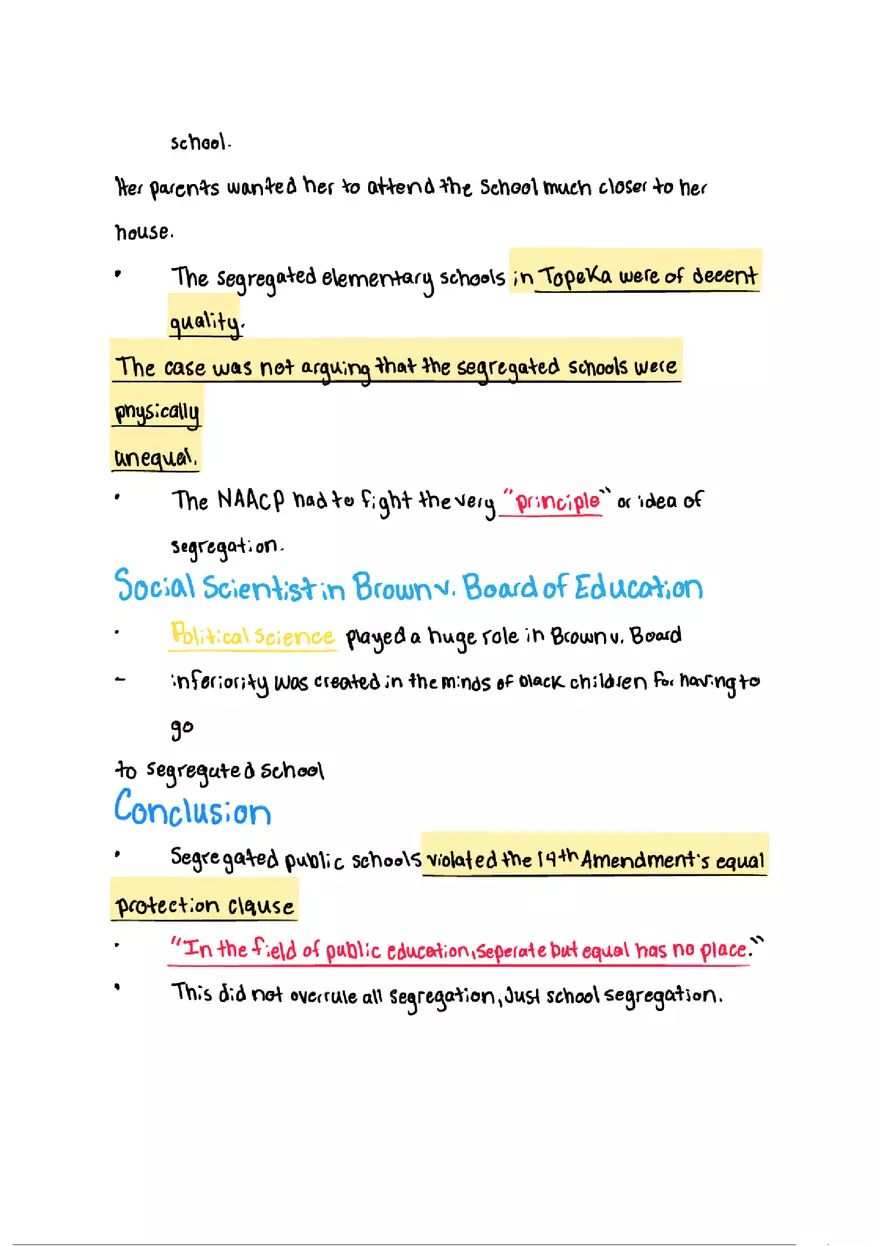 school.
Her parents wanted her to attend the School much closer to her
house.
• The segregated elementary schools in Topeka were of decent
quality.
The case was not arguing that the segregated schools were
physically
unequal.
• The NAACP had to fight the very "principle" or idea of
segregation.
Social Scientist in Brown v. Board of Education
• Political Science played a huge role in Brown v. Board
- inferiority was created in the minds of black children for having to
go
to segregated school
Conclusion
• Segregated public schools violated the 14th Amendment's equal
protection clause
• "In the field of public education, seperate but equal has no place."
• This did not overrule all segregation, Just school segregation.